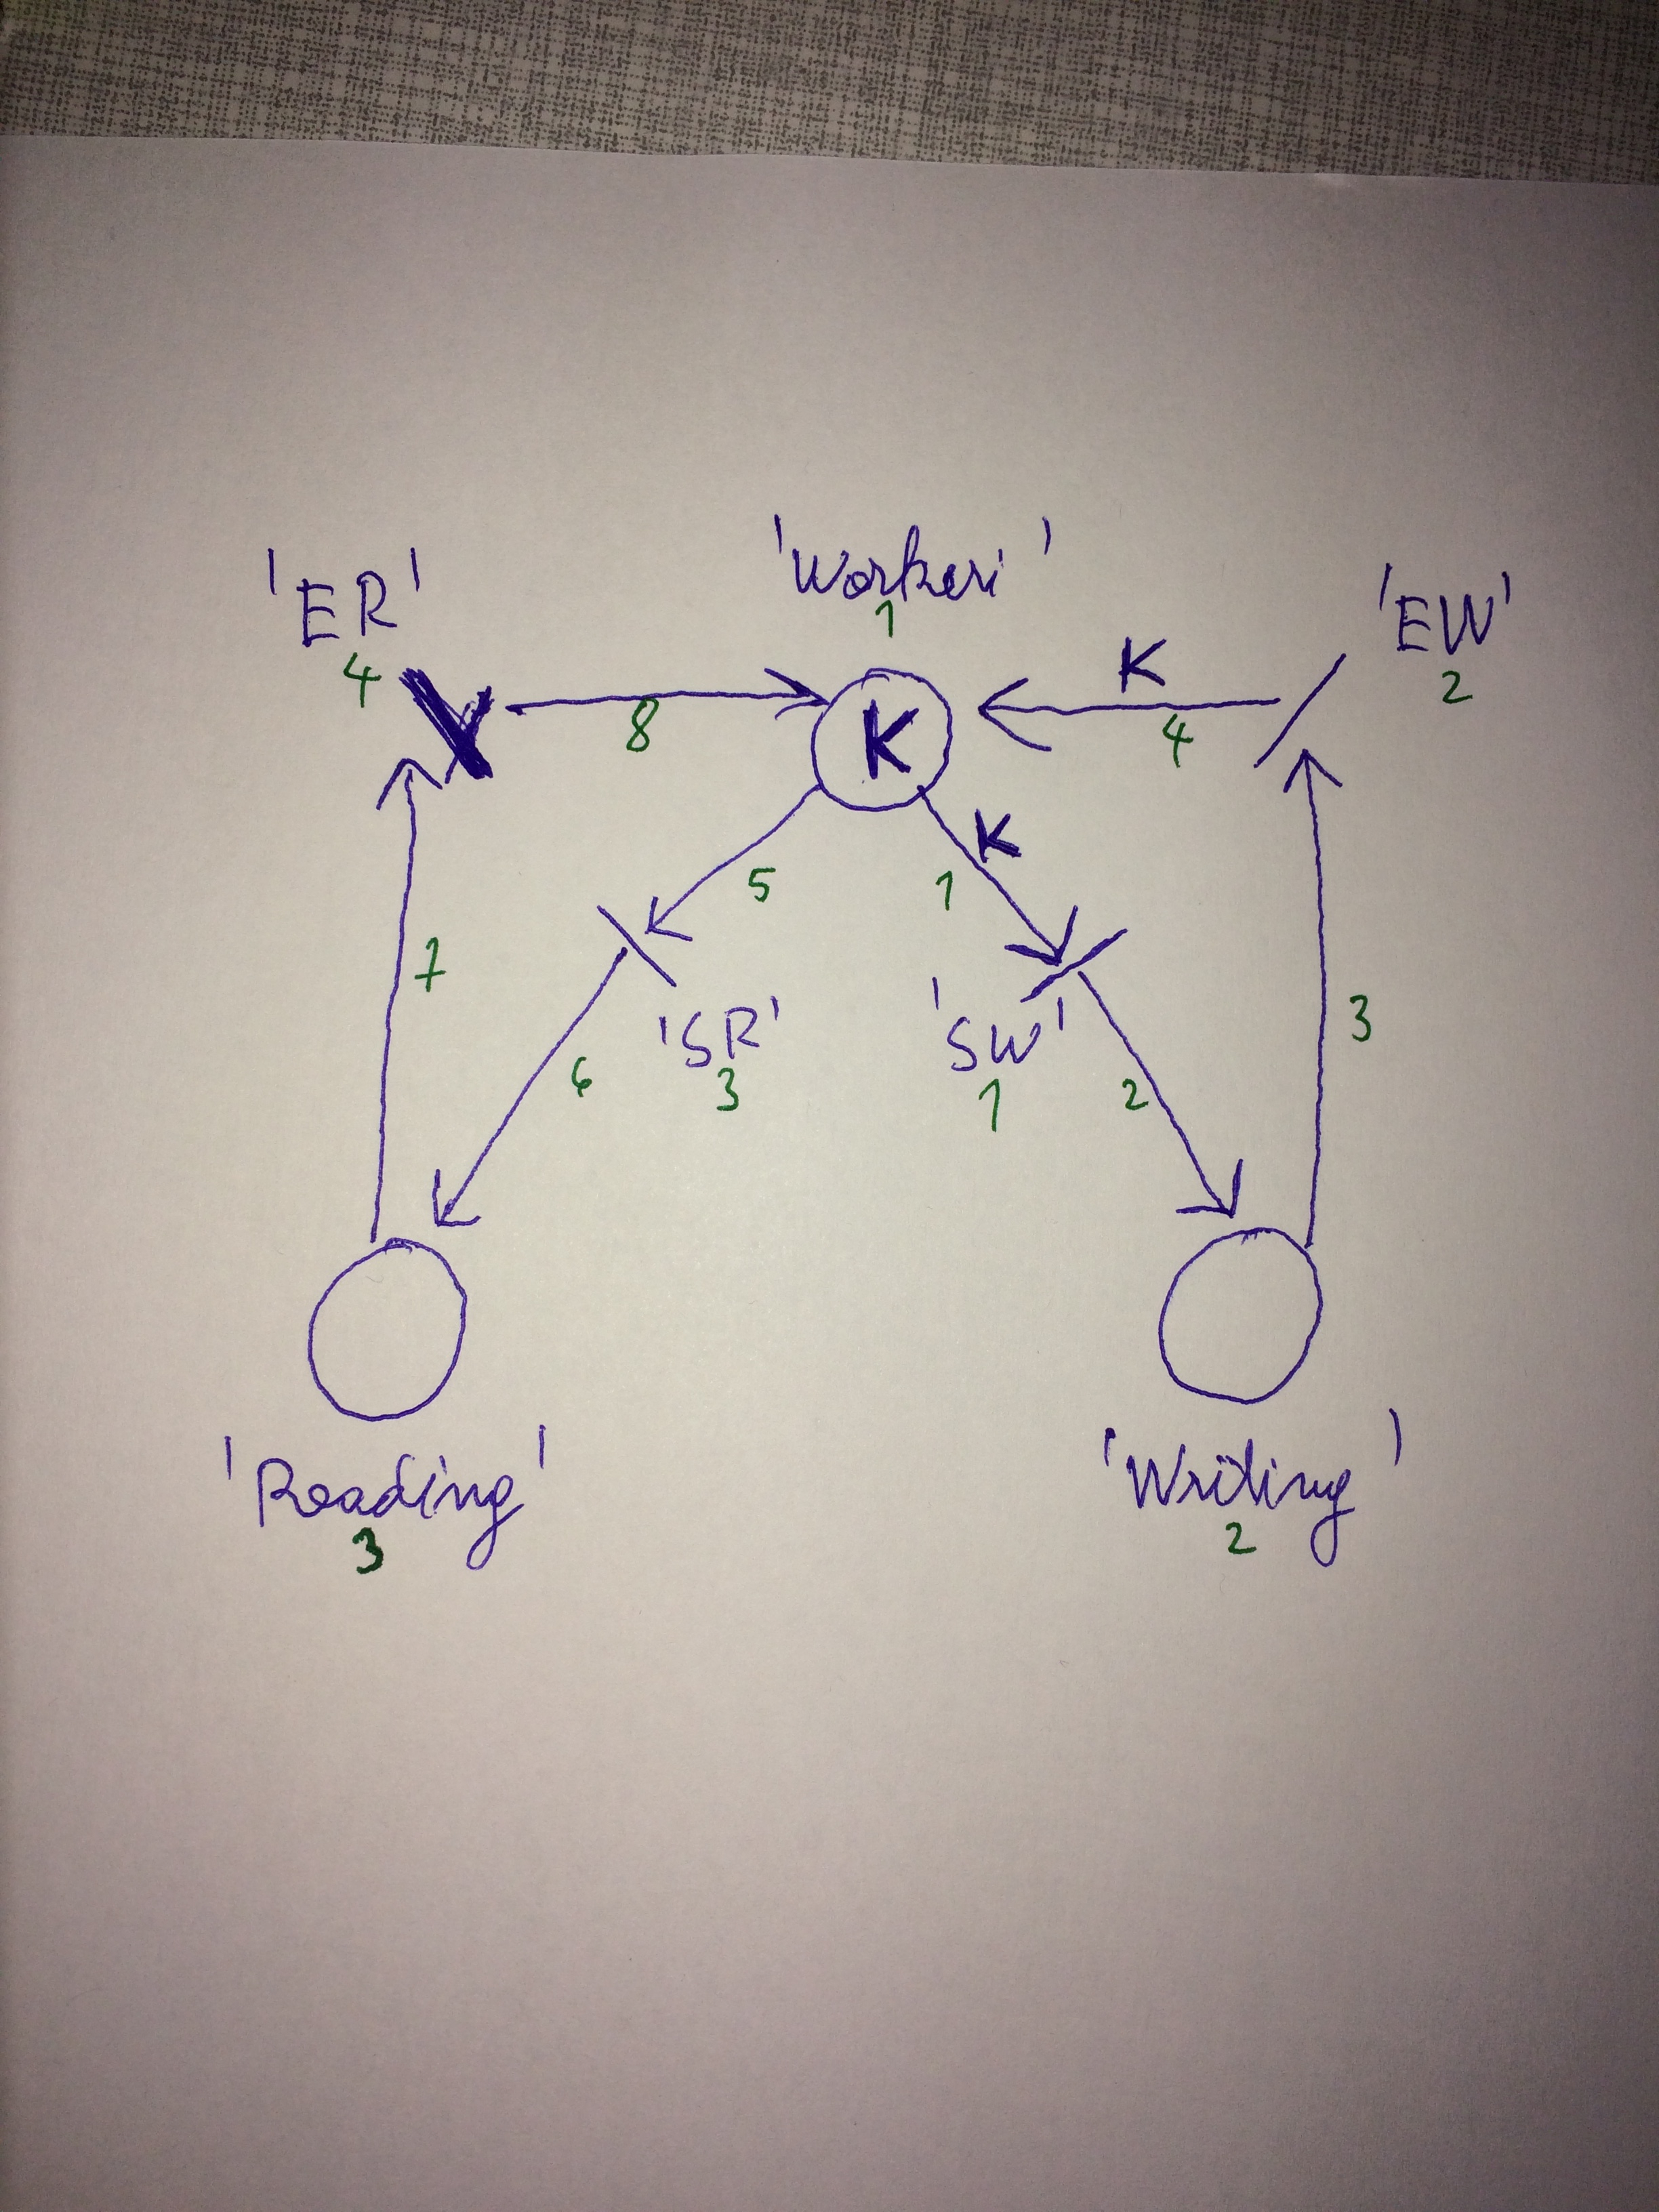 'ER'
4
'Workeri'
1
'EW'
2
8
K
K
4
K
5
1
7
'SR'
3
'SW'
1
6
2
3
'Reading'
3
'Writing'
2